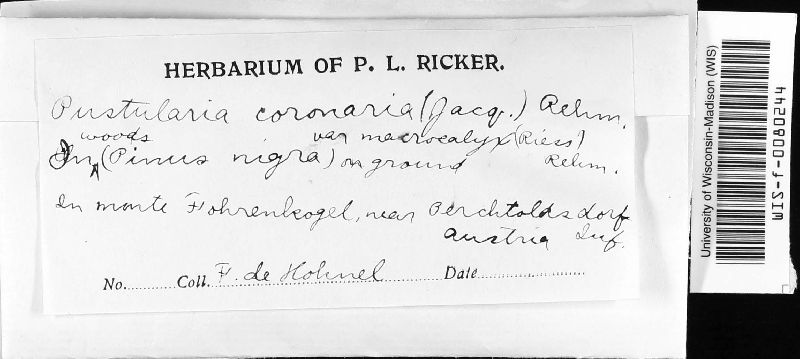 HERBARIUM OF P. L. RICKER.
Pustularia coronaria (Jacq.) Rehm.
var macrocalyx (Riess) Rehm.
In woods (Pinus nigra) on ground
In monte Fohrenkogel, near Perchtoldsdorf
Austria Inf.
No.......... Coll. F. de Hohnel Date..........
University of Wisconsin-Madison (WIS)
WIS-f-0080244